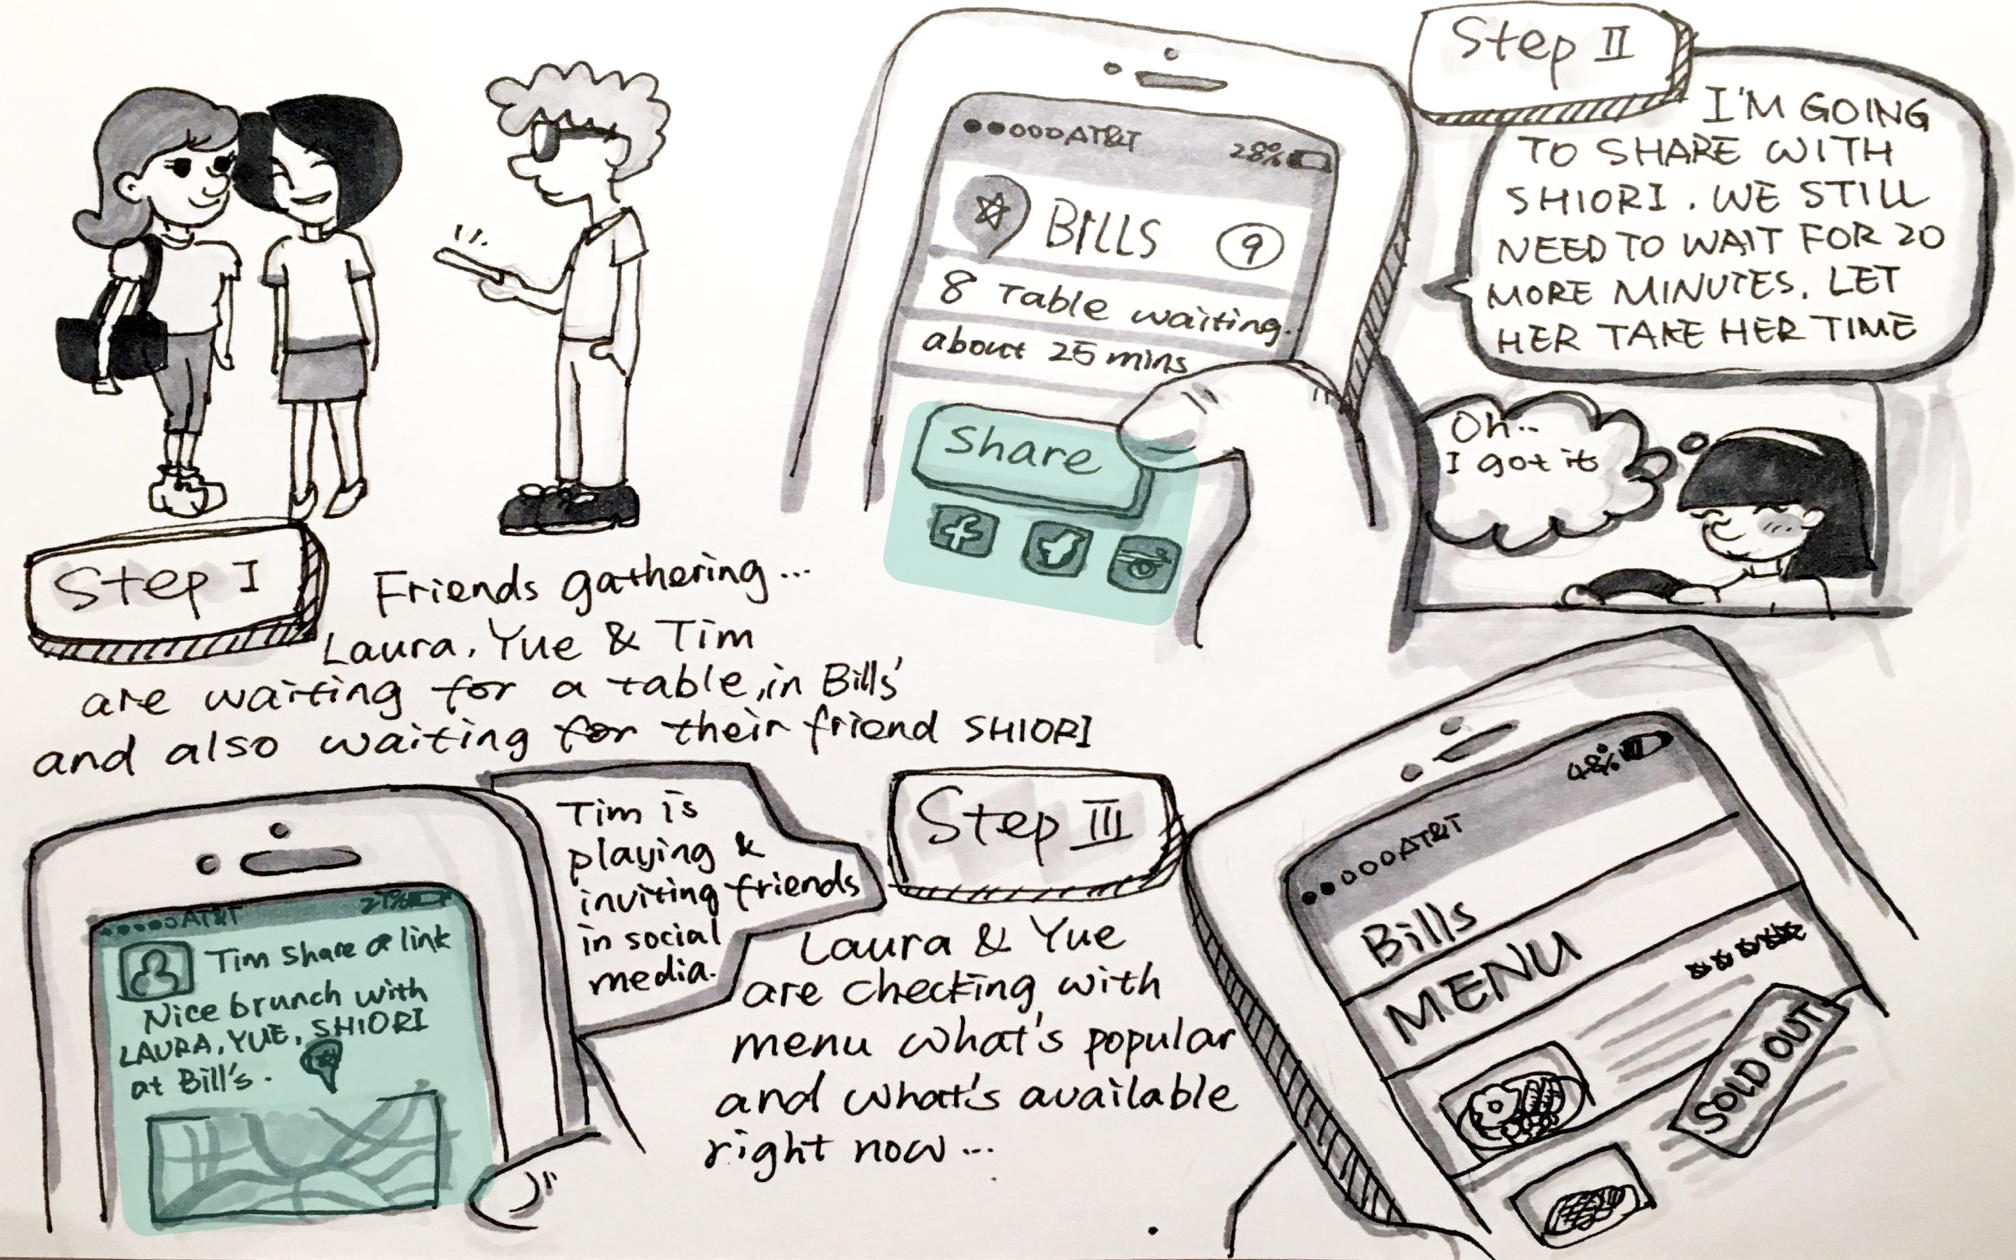 Step I
Friends gathering...
Laura, Yue & Tim
are waiting for a table, in Bills'
and also waiting for their friend SHIORI
AT&T 28%
BILLS 9
8 Table waiting.
about 25 mins
Share
Step II
I'M GOING
TO SHARE WITH
SHIORI. WE STILL
NEED TO WAIT FOR 20
MORE MINUTES. LET
HER TAKE HER TIME
Oh..
I got it
AT&T 27%
Tim share a link
Nice brunch with
LAURA, YUE, SHIORI
at Bill's.
Tim is
playing &
inviting friends
in social
media.
Step III
Laura & Yue
are checking with
menu what's popular
and what's available
right now...
AT&T 48%
Bills
MENU
SOLD OUT